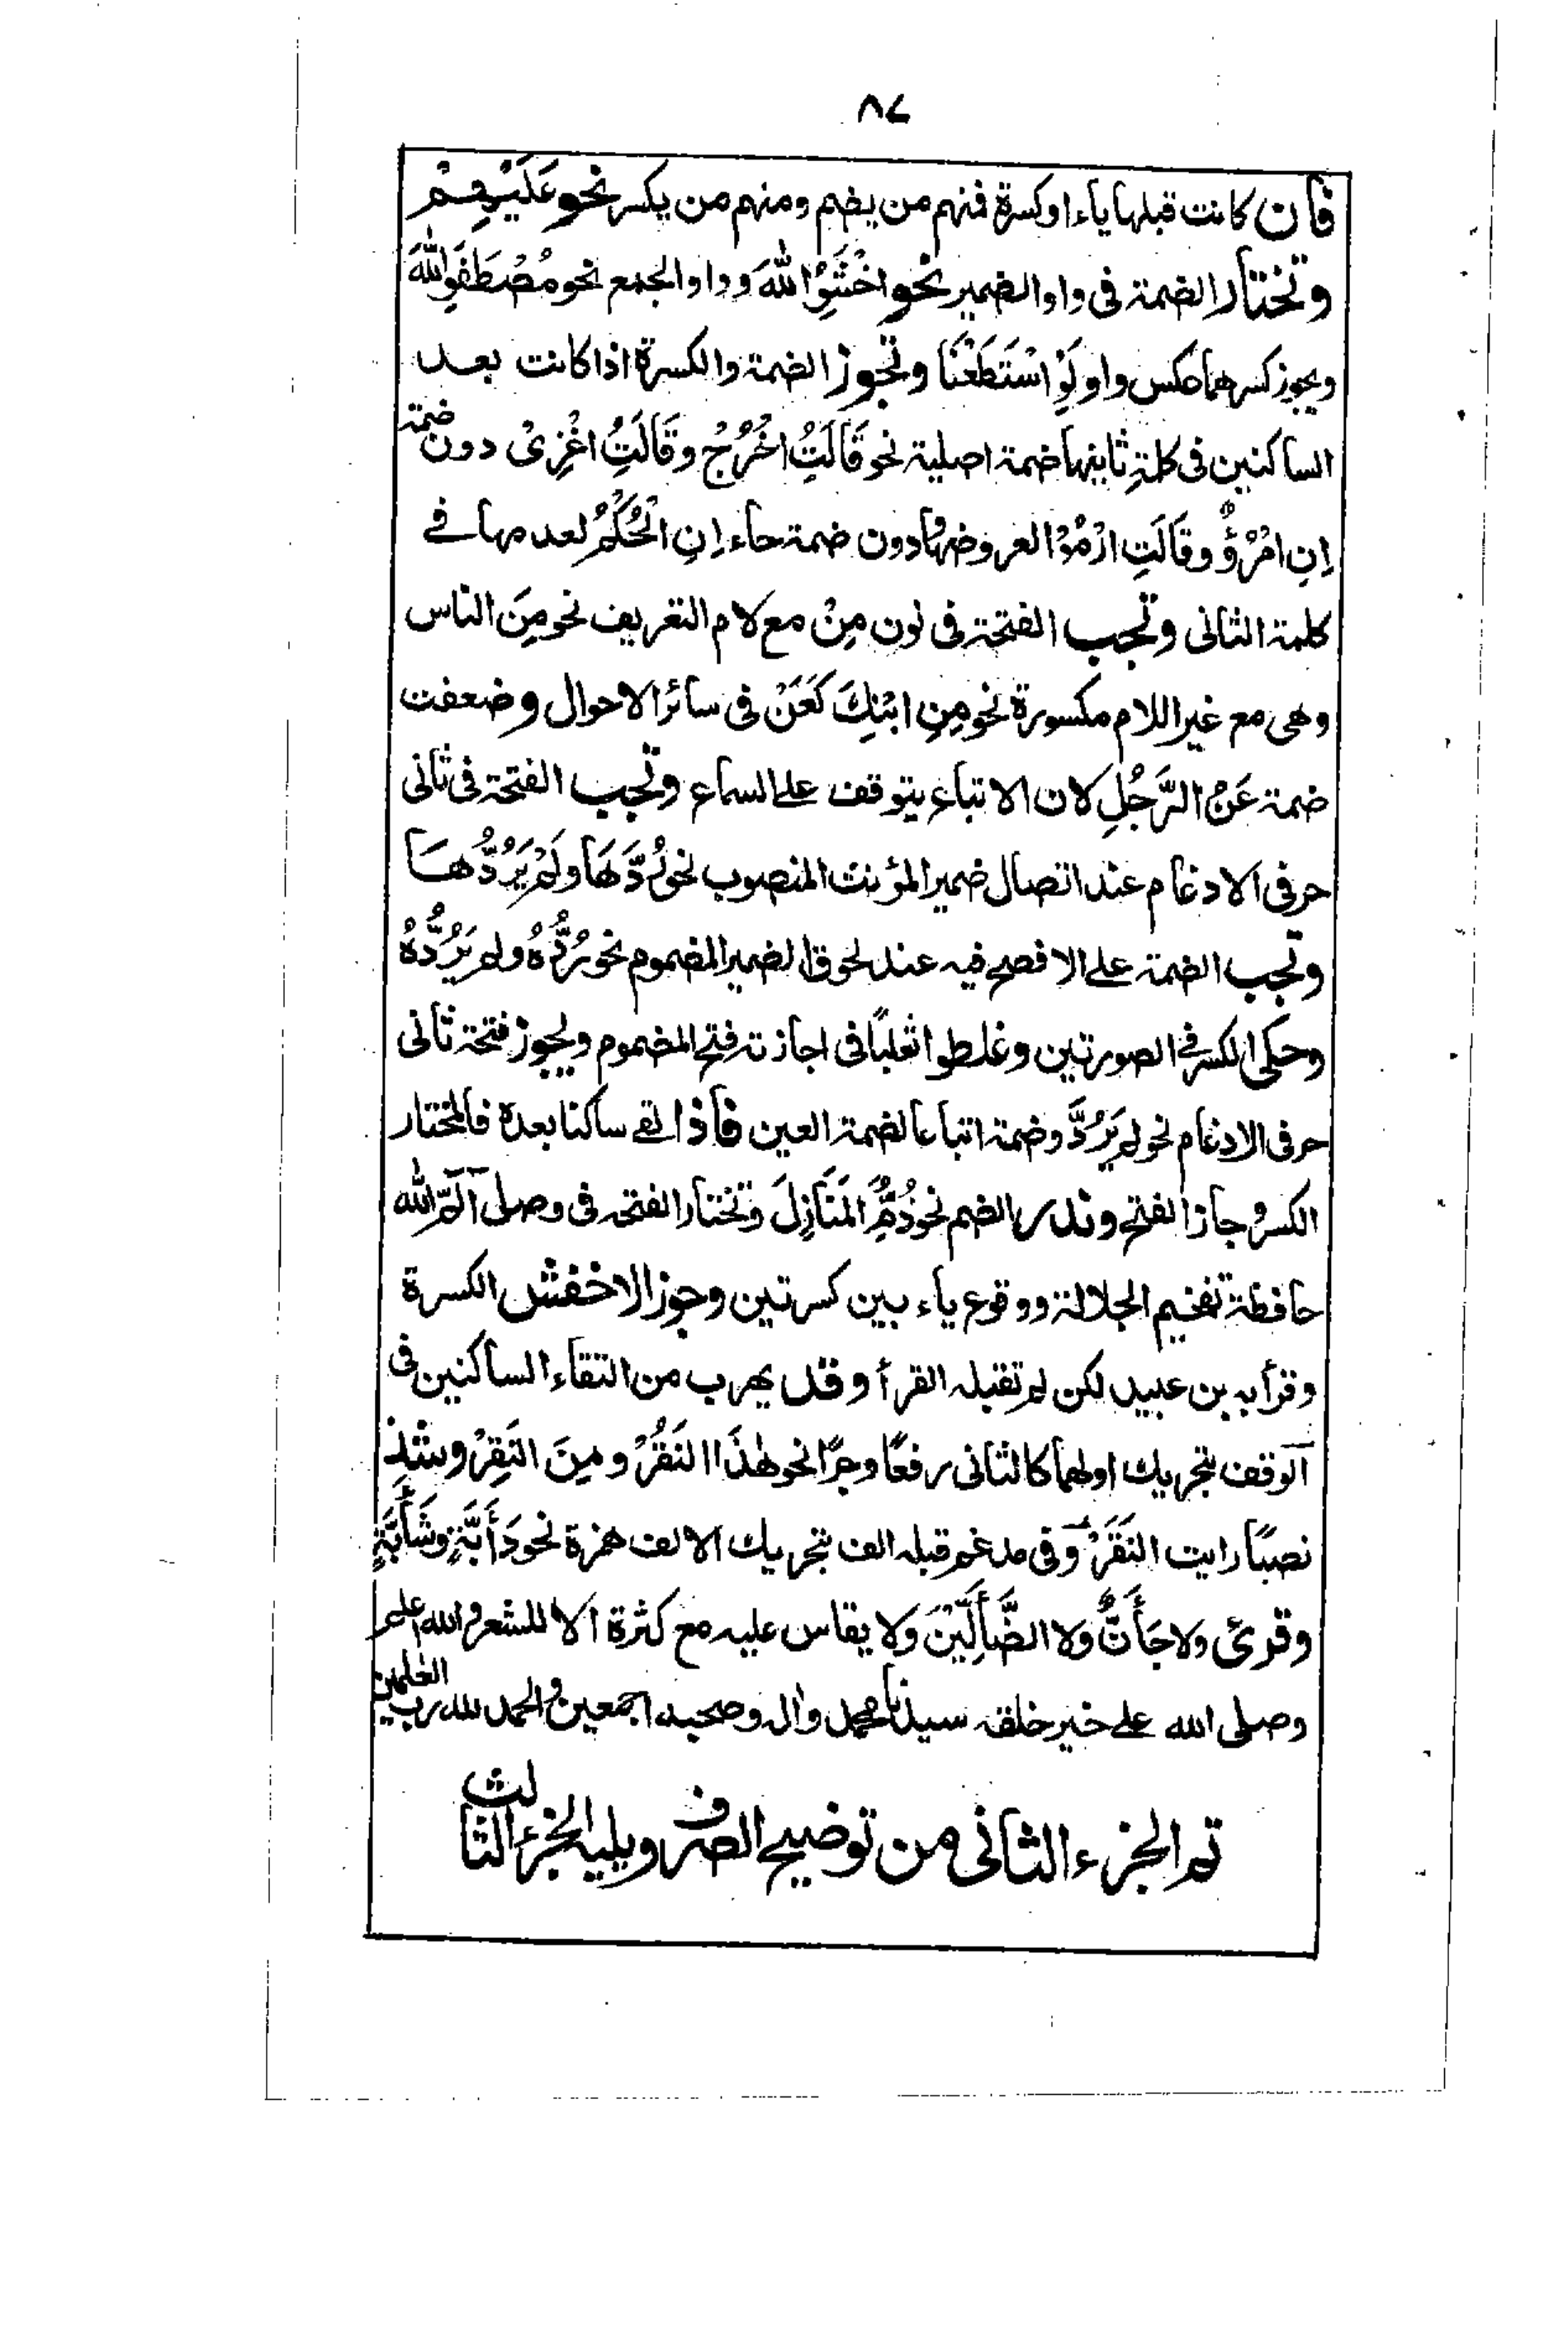 ٨٤
فان كانت قبلها ياء او كسرة فمنهم من يضم ومنهم من يكسر نحو عَلَيْهِمْ
وتختار الضمة فى واو الضمير نحو اخْشَوُِا اللهَ وواو الجمع نحو مُصْطَفَوِ اللهَ
ويجوز كسرهما عكس واو لَوِ اسْتَطَعْنَا وتجوز الضمة والكسرة اذا كانت بعد
الساكنين فى كلمةِ ثانيهما ضمة اصلية نحو قَالَتُِ اخْرُجْ وقَالَتُِ اغْزِىْ دون ضمة
اِنِ امْرُؤٌ وقَالَتِ ارْمُوْا لعروضها دون ضمة حاء اِنِ الْحُكْمُ لعدمها فے
كلمة الثانى وتجب الفتحة فى نون مِنْ مع لام التعريف نحو مِنَ الناس
وهى مع غير اللام مكسورة نحو مِنِ ابْنِكَ كَعَنْ فى سائر الاحوال وضعفت
ضمة عَنُ الرَّجُلِ لان الاتباع يتوقف على السماع وتجب الفتحة فى ثانى
حرفى الادغام عند اتصال ضمير المؤنث المنصوب نحو رُدَّهَا ولَمْ يَرُدَّهَا
وتجب الضمة على الافصح فيه عند لحوق الضمير المضموم نحو رُدُّهُ ولم يَرُدُّهُ
وحكى الكسر فے الصورتين وغلطوا ثعلبًا فى اجازته فتح المضموم ويجوز فتحة ثانى
حرفى الادغام نحو لم يَرُدَّ وضمة اتباعا لضمة العين فاذا لقے ساكنا بعدهٗ فالمختار
الكسر وجاز الفتح وندر الضم نحو ذُمَُِّ المَنَازِلَ وتختار الفتحة فى وصل الٓمّٓ الله
حافظة تفخيم الجلالة ووقوع ياء بين كسرتين وجوز الاخفش الكسرة
وقرأ به بن عبيد لكن لم تقبله القرأ وقد يهرب من التقاء الساكنين فى
الوقف بتحريك اولهما كالثانى رفعًا وجرًّا نحو هٰذَا النَقُرْ ومِنَ النَقِرْ وشذ
نصبًا رايت النَقَرْ وفى مدغم قبله الف بتحريك الالف همزة نحو دَأَبَّةٍ وشَأَبَّةٍ
وقرئ ولا جَأَنٌّ ولا الضَّأَلِّيْنَ ولا يقاس عليه مع كثرة الا للشعر والله اعلم
وصلى الله على خير خلقه سيدنا محمد وال وصحبه اجمعين والحمد لله رب العٰلمين
تم الجزء الثانى من توضيح الصرف ويليه الجزء الثالث